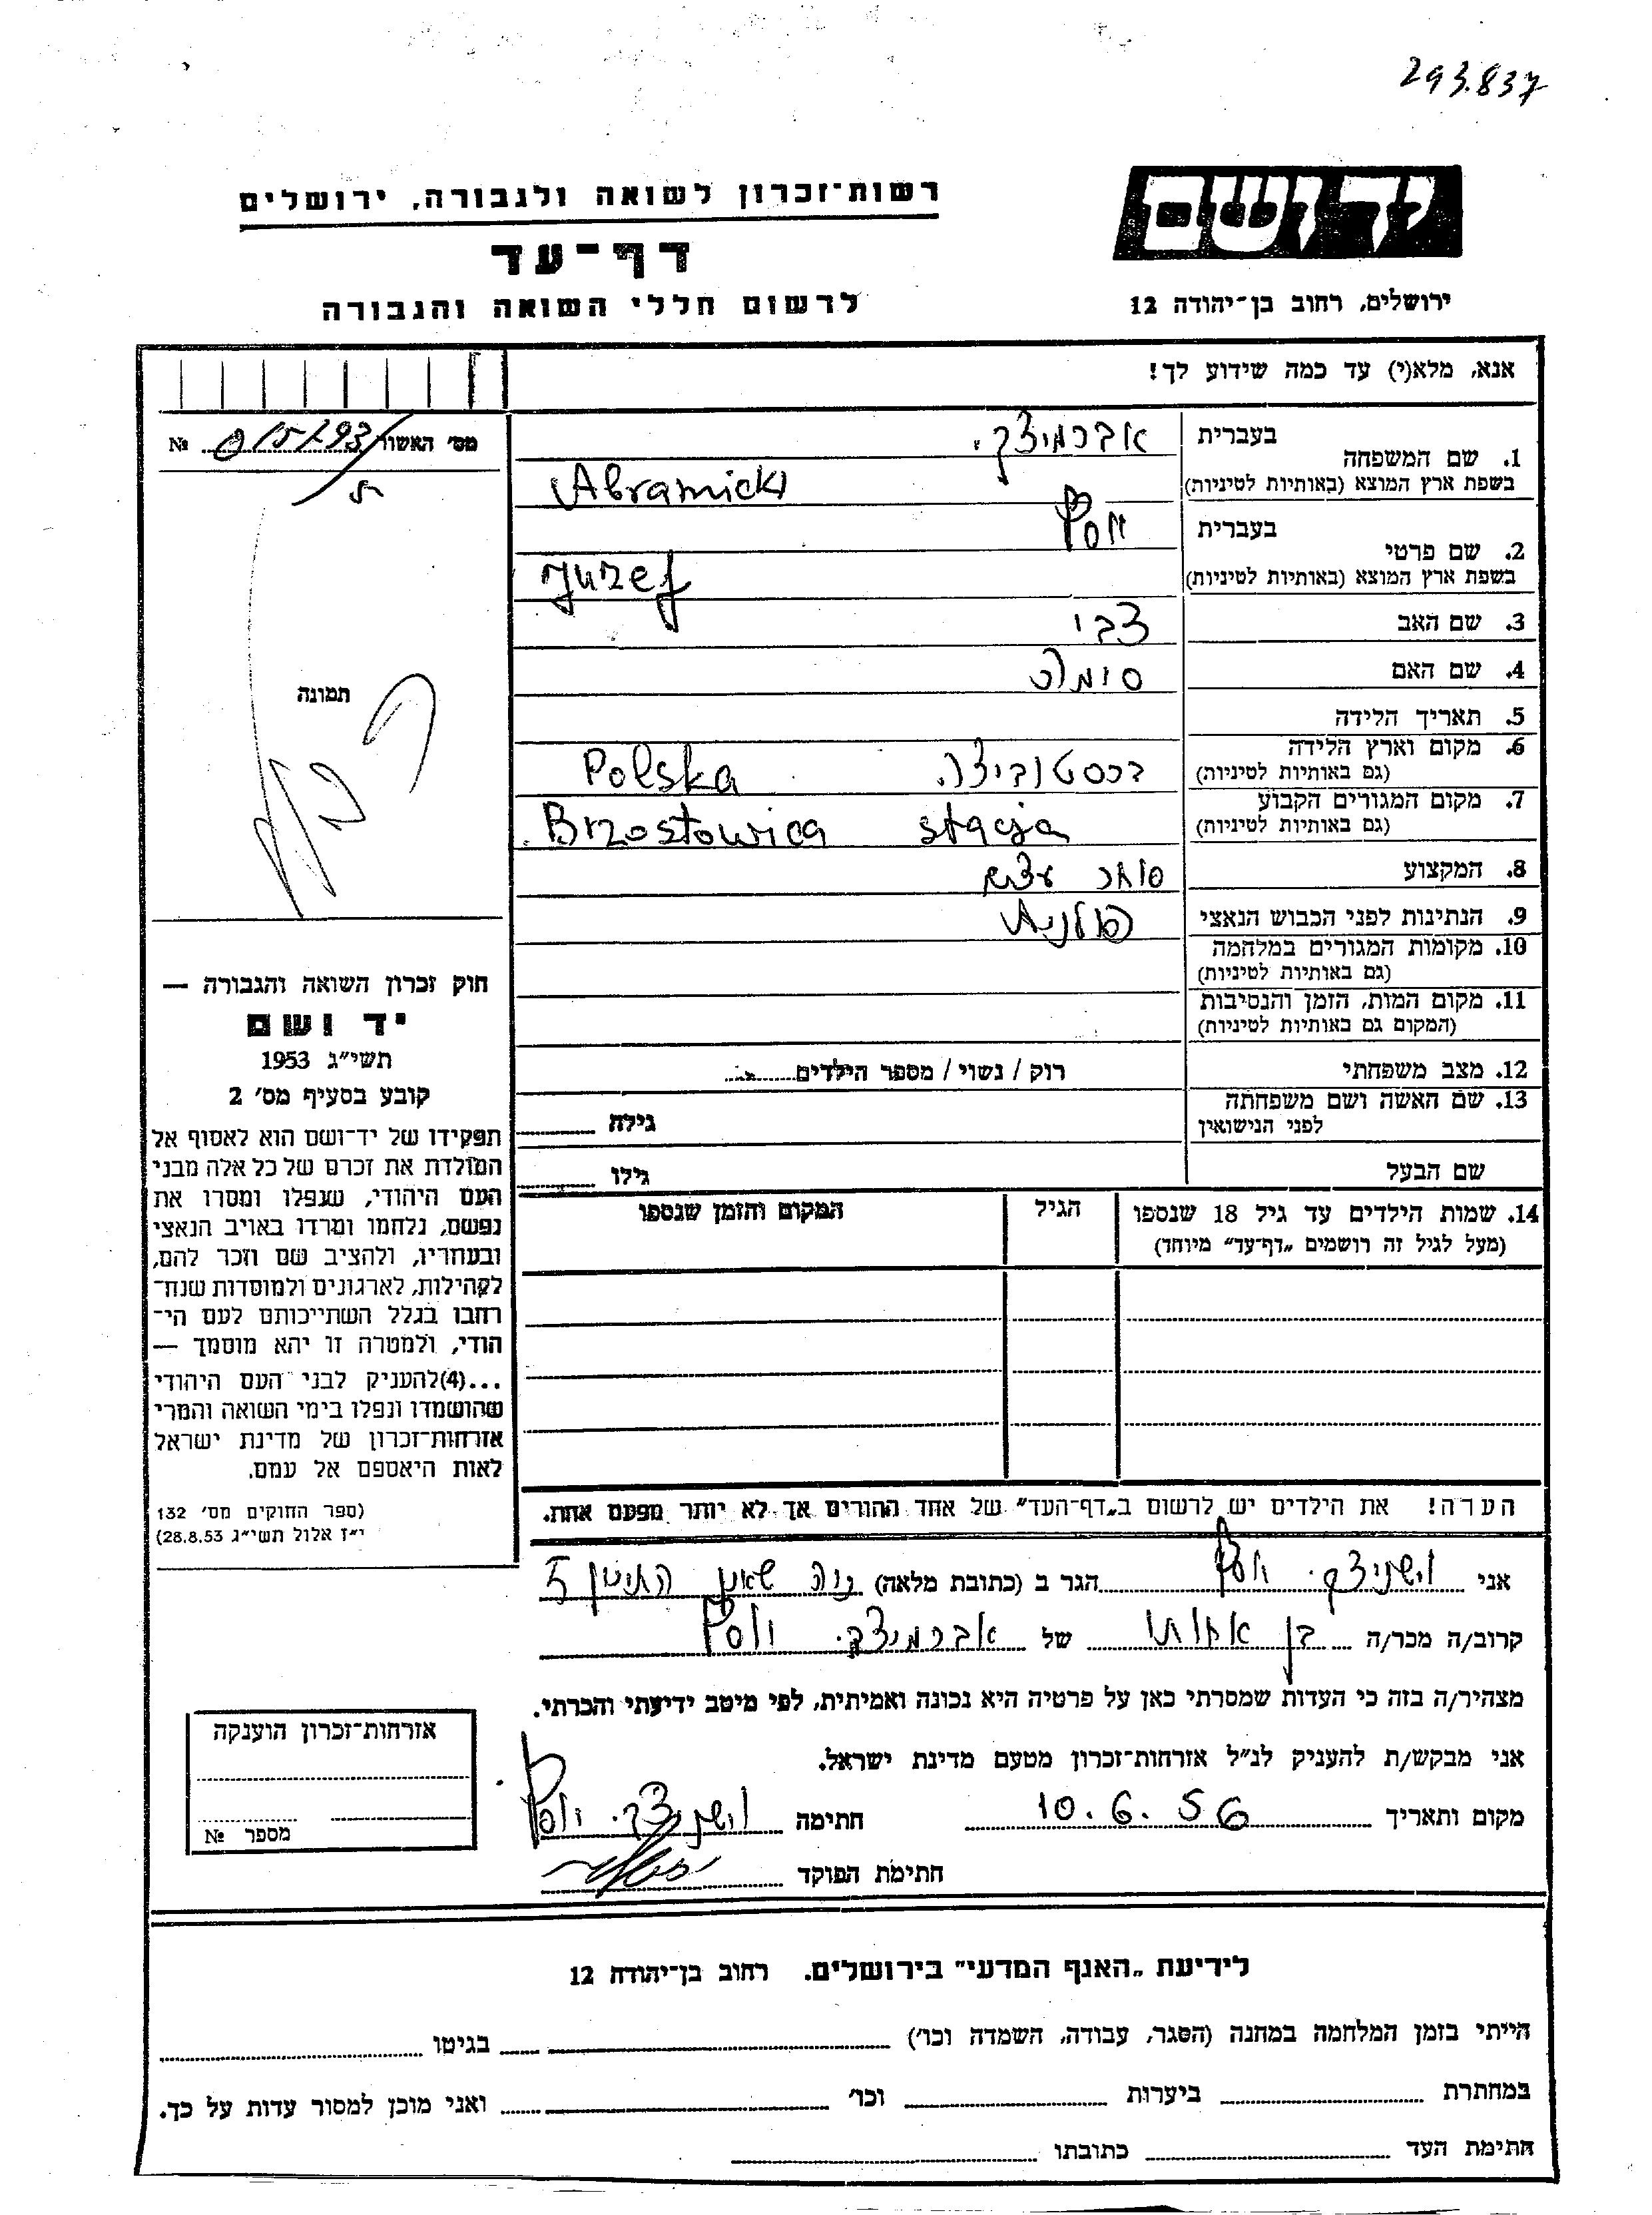 293.837
יד ושם
רשות־זכרון לשואה ולגבורה, ירושלים
דף־עד
לרשום חללי השואה והגבורה
ירושלים, רחוב בן־יהודה 12
אנא, מלא(י) עד כמה שידוע לך!
מס' האשור № 015793
1. שם המשפחה
בעברית אברמיצקי
בשפת ארץ המוצא (באותיות לטיניות) Abramicki
2. שם פרטי
בעברית יוסף
בשפת ארץ המוצא (באותיות לטיניות) Juzef
3. שם האב צבי
4. שם האם
5. תאריך הלידה
6. מקום וארץ הלידה
(גם באותיות לטיניות) ברסטוביצה Polska
7. מקום המגורים הקבוע
(גם באותיות לטיניות) Brzostowica stacja
8. המקצוע סוחר עצים
9. הנתינות לפני הכבוש הנאצי פולנית
10. מקומות המגורים במלחמה
(גם באותיות לטיניות)
11. מקום המות, הזמן והנסיבות
(המקום גם באותיות לטיניות)
12. מצב משפחתי רוק / נשוי / מספר הילדים
13. שם האשה ושם משפחתה
לפני הנישואין גילה
שם הבעל גילו
14. שמות הילדים עד גיל 18 שנספו הגיל המקום והזמן שנספו
(מעל לגיל זה רושמים „דף־עד" מיוחד)
תמונה
חוק זכרון השואה והגבורה —
יד ושם
תשי״ג 1953
קובע בסעיף מס' 2
תפקידו של יד־ושם הוא לאסוף אל
המולדת את זכרם של כל אלה מבני
העם היהודי, שנפלו ומסרו את
נפשם, נלחמו ומרדו באויב הנאצי
ובעוזריו, ולהציב שם וזכר להם,
לקהילות, לארגונים ולמוסדות שנח־
רחבו בגלל השתייכותם לעם הי־
הודי, ולמטרה זו יהא מוסמך —
...(4)להעניק לבני העם היהודי
שהושמדו ונפלו בימי השואה והמרי
אזרחות־זכרון של מדינת ישראל
לאות היאספם אל עמם.
(ספר החוקים מס' 132
י״ז אלול תשי״ג 28.8.53)
הערה! את הילדים יש לרשום ב„דף־העד" של אחד ההורים אך לא יותר מפעם אחת.
אני יוסף הגר ב (כתובת מלאה) נוה שאנן
קרוב/ה מכר/ה בן אחותו של אברמיצקי יוסף
מצהיר/ה בזה כי העדות שמסרתי כאן על פרטיה היא נכונה ואמיתית, לפי מיטב ידיעתי והכרתי.
אני מבקש/ת להעניק לנ״ל אזרחות־זכרון מטעם מדינת ישראל.
מקום ותאריך 10.6.56 חתימה יוסף
חתימת הפוקד
אזרחות־זכרון הוענקה
מספר №
לידיעת „האגף המדעי" בירושלים. רחוב בן־יהודה 12
הייתי בזמן המלחמה במחנה (הסגר, עבודה, השמדה וכו') בגיטו
במחתרת ביערות וכו' ואני מוכן למסור עדות על כך.
חתימת העד כתובתו